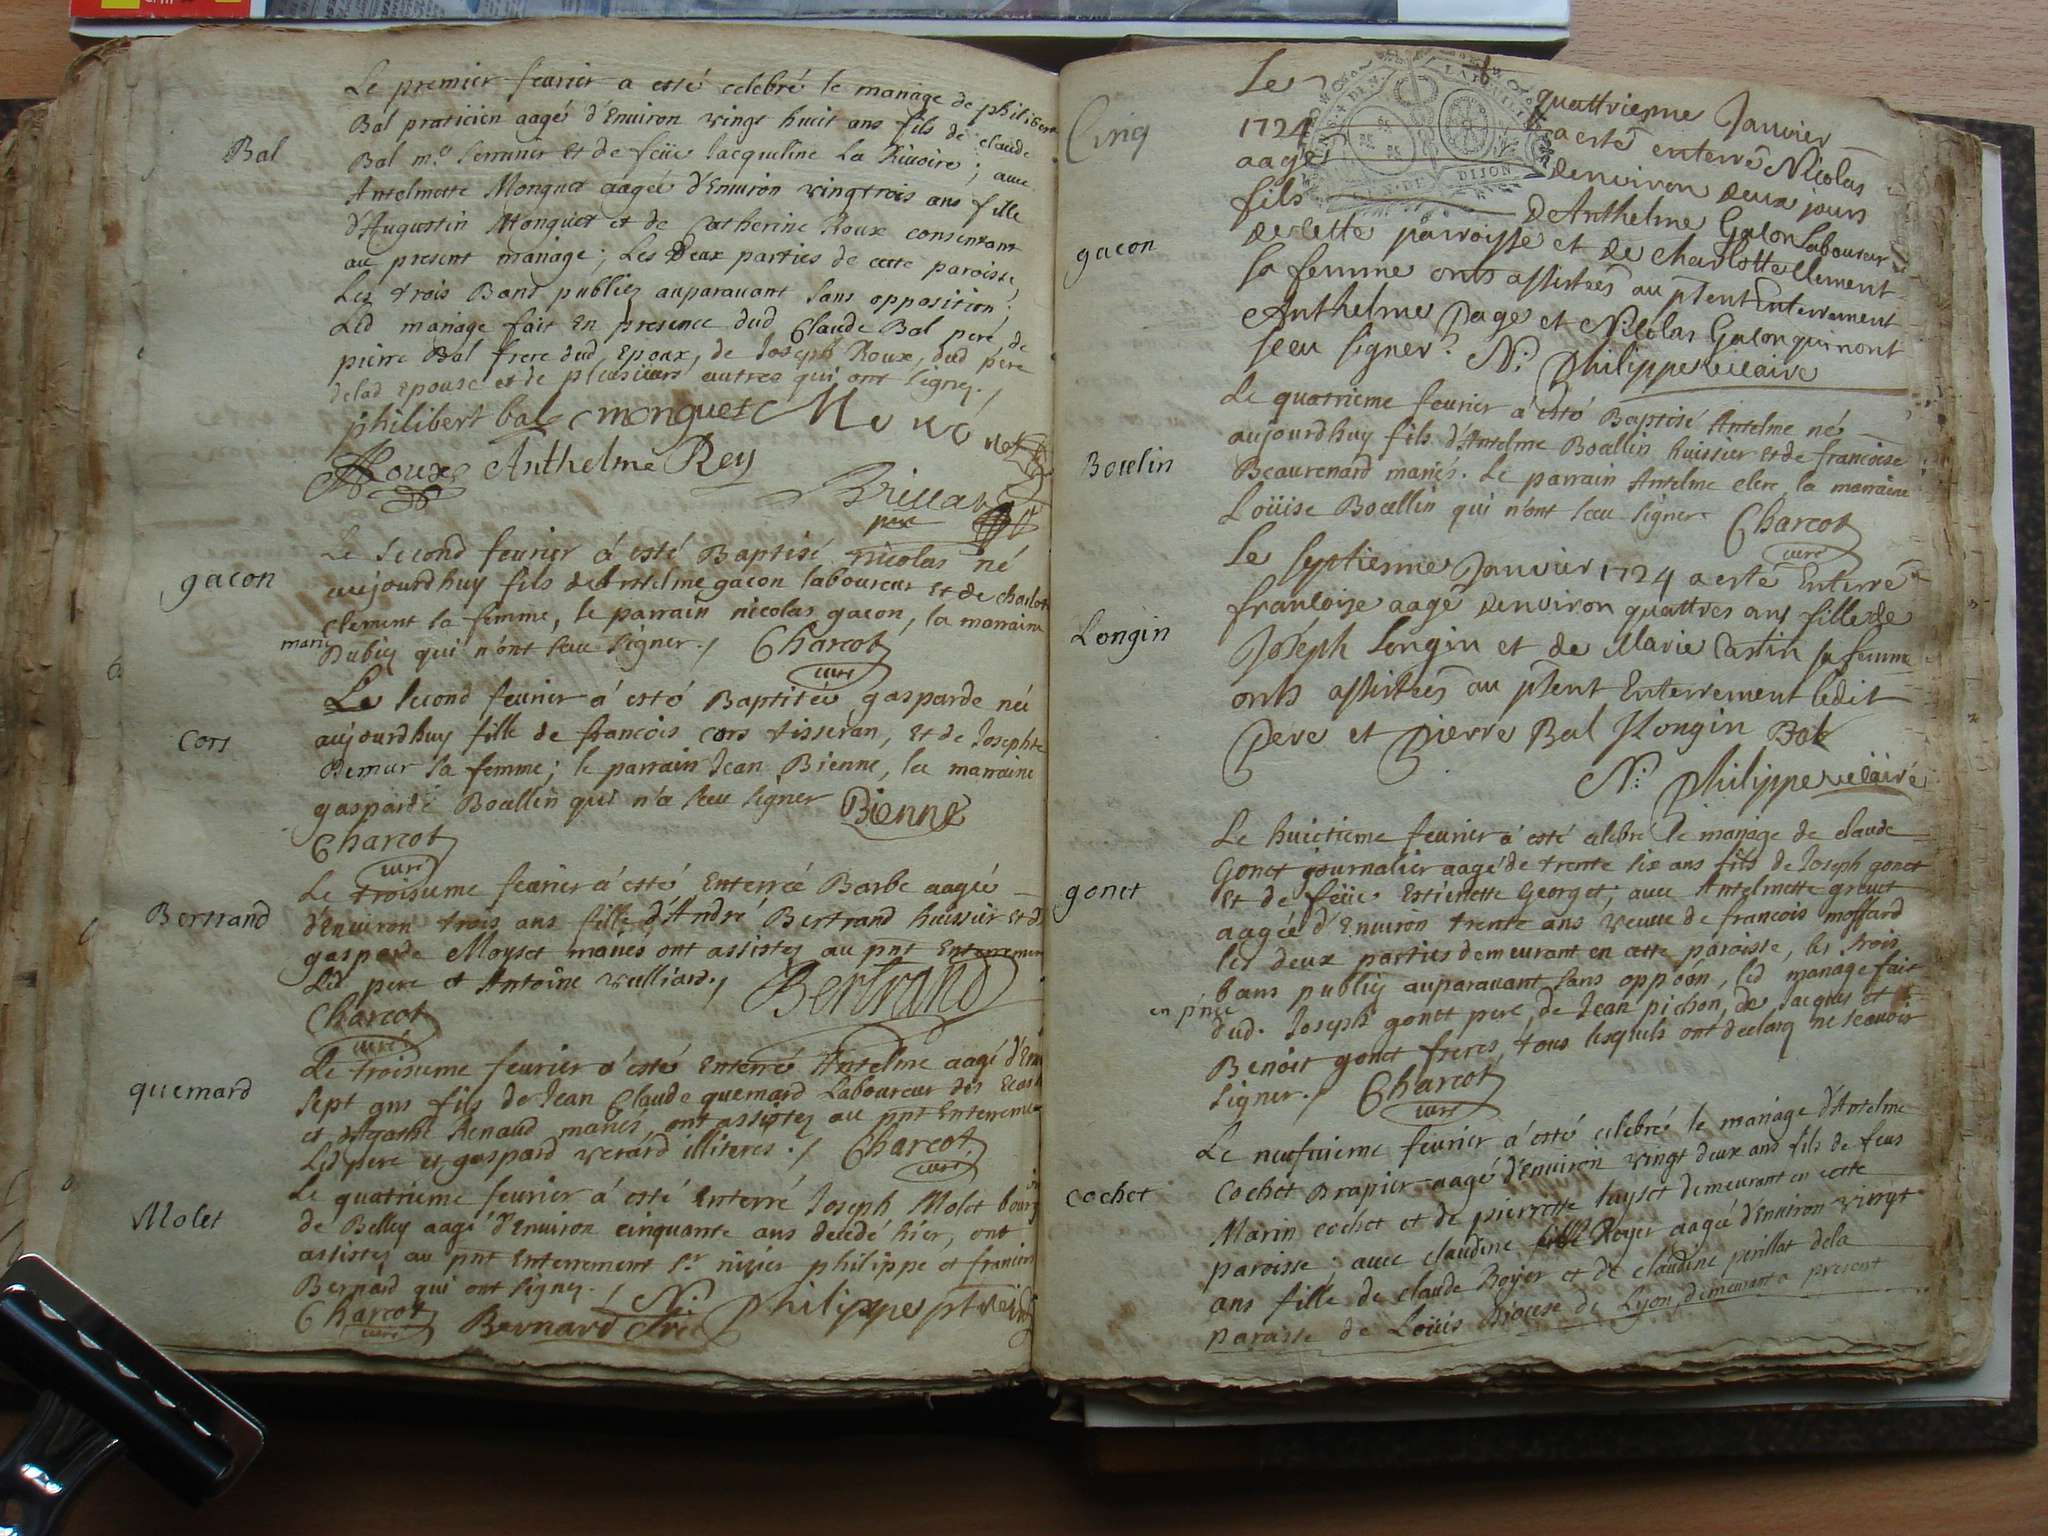 Le premier feurier a esté celebré le mariage de philibert
Bal praticien aagé d'Enuiron vingt huit ans fils de claude
Bal
Bal m.e serrurier Et de feüe Jacqueline La Riuoire; auec
Antelmette Monguet aagée d'Enuiron vingtrois ans fille
d'Augustin Monguet et de Catherine Roux consentant
au present mariage; Les Deux parties de cette paroisse,
Les trois Bans publiez auparauant sans opposition;
Led mariage fait En presence dud Claude Bal pere, de
pierre Bal frere dud Epoux, de Joseph Roux, dud pere
delad Epouse et de plusieurs autres qui ont signez./
philibert bal monguet
Roux Anthelme Rey
Brillat
pere
Le second feurier á esté Baptisé nicolas né
gacon
aujourdhuy fils de Antelme gacon laboureur Et de charlote
clement sa femme, le parrain nicolas gacon, la marraine
marie
Dubiez qui n'ont sceu signer./ Charcot
curé
Le second feurier á esté Baptiseé gasparde neé
Cors
aujourdhuy fille de francois cors tisseran, Et de Josephte
Demur sa femme; le parrain Jean Bienne, la marraine
gasparde Boüllin qui n'a sceu signer Bienne
Charcot
curé
Le troisieme feurier á esté Enterreé Barbe aagée
Bertrand
d'Enuiron trois ans fille d'André Bertrand huissier Et de
gasparde Moyset mariés ont assistez au pnt Enterrement
Led pere et Antoine vulliard./ Bertrand
Charcot
curé
Le troisieme feurier á esté Enterré Antelme aagé d'Enu
quemard
sept ans fils de Jean Claude quemard Laboureur des
et d'Agathe Renaud mariés, ont assistez au pnt Enterrement
Led pere et gaspard verard illiteres./ Charcot
curé
Le quatrieme feurier á esté Enterré Joseph Molet bourg
Molet
de Belley aagé d'Enuiron cinquante ans decedé hier, ont
assistez au pnt Enterrement Sr. nizier philippe et francois
Bernard qui ont signez./
Charcot Bernard clerc N: philippe ptre vic
curé
Le quattriesme Januier
Cinq
1724 a esté enterré Nicolas
aagé denuiron deux jours
fils De Anthelme Gacon Laboureur
gacon
de cette parroisse et de charlotte Clement
sa femme onts assistrés au psent Enterrement
Anthelme Page et Nicolas Gacon qui nont
sceu signer. N: Philippe vicaire
Le quatrieme feurier á esté Baptisé Antelme né
aujourdhuy fils d'Antelme Boüllin huissier Et de francoise
Bouelin
Beaurenard mariés. Le parrain Antelme clerc la marraine
Loüise Boüllin qui n'ont sceu signer Charcot
curé
Le septiesme Januier 1724 a esté Enterré
francoise aagé denviron quattres ans fille de
Longin
Joseph Longin et de Marie Castin sa femme
onts assistrés au psent Enterrement ledit
Pere et Pierre Bal J Longin Bal
N: Philippe vicaire
Le huictieme feurier á esté celebré le mariage de claude
Gonet journalier aagé de trente six ans fils de Joseph gonet
gonet
Et de feüe Estienette Georget; auec Antelmette greuet
aagée d'Enuiron trente ans veuue de francois moffard
les deux parties demeurant en cette paroisse, les trois
bans publiez auparauant sans oppoon, led mariage fait
en pnce
dud. Joseph gonet pere, de Jean pichon, de Jacques et
Benoit gonet freres, tous lesquels ont declarq ne scauoir
signer./ Charcot
curé
Le neufuieme feurier á esté celebré le mariage d'Antelme
Cochet Drapier aagé d'Enuiron vingt deux ans fils de feus
cochet
Marin cochet et de pierrette luyset demeurant en cette
paroisse; auec claudine Royer aagée d'Enuiron vingt
ans fille de claude Royer et de claudine perillat dela
paroisse de Loüis Diocese de Lyon, demeurant a present